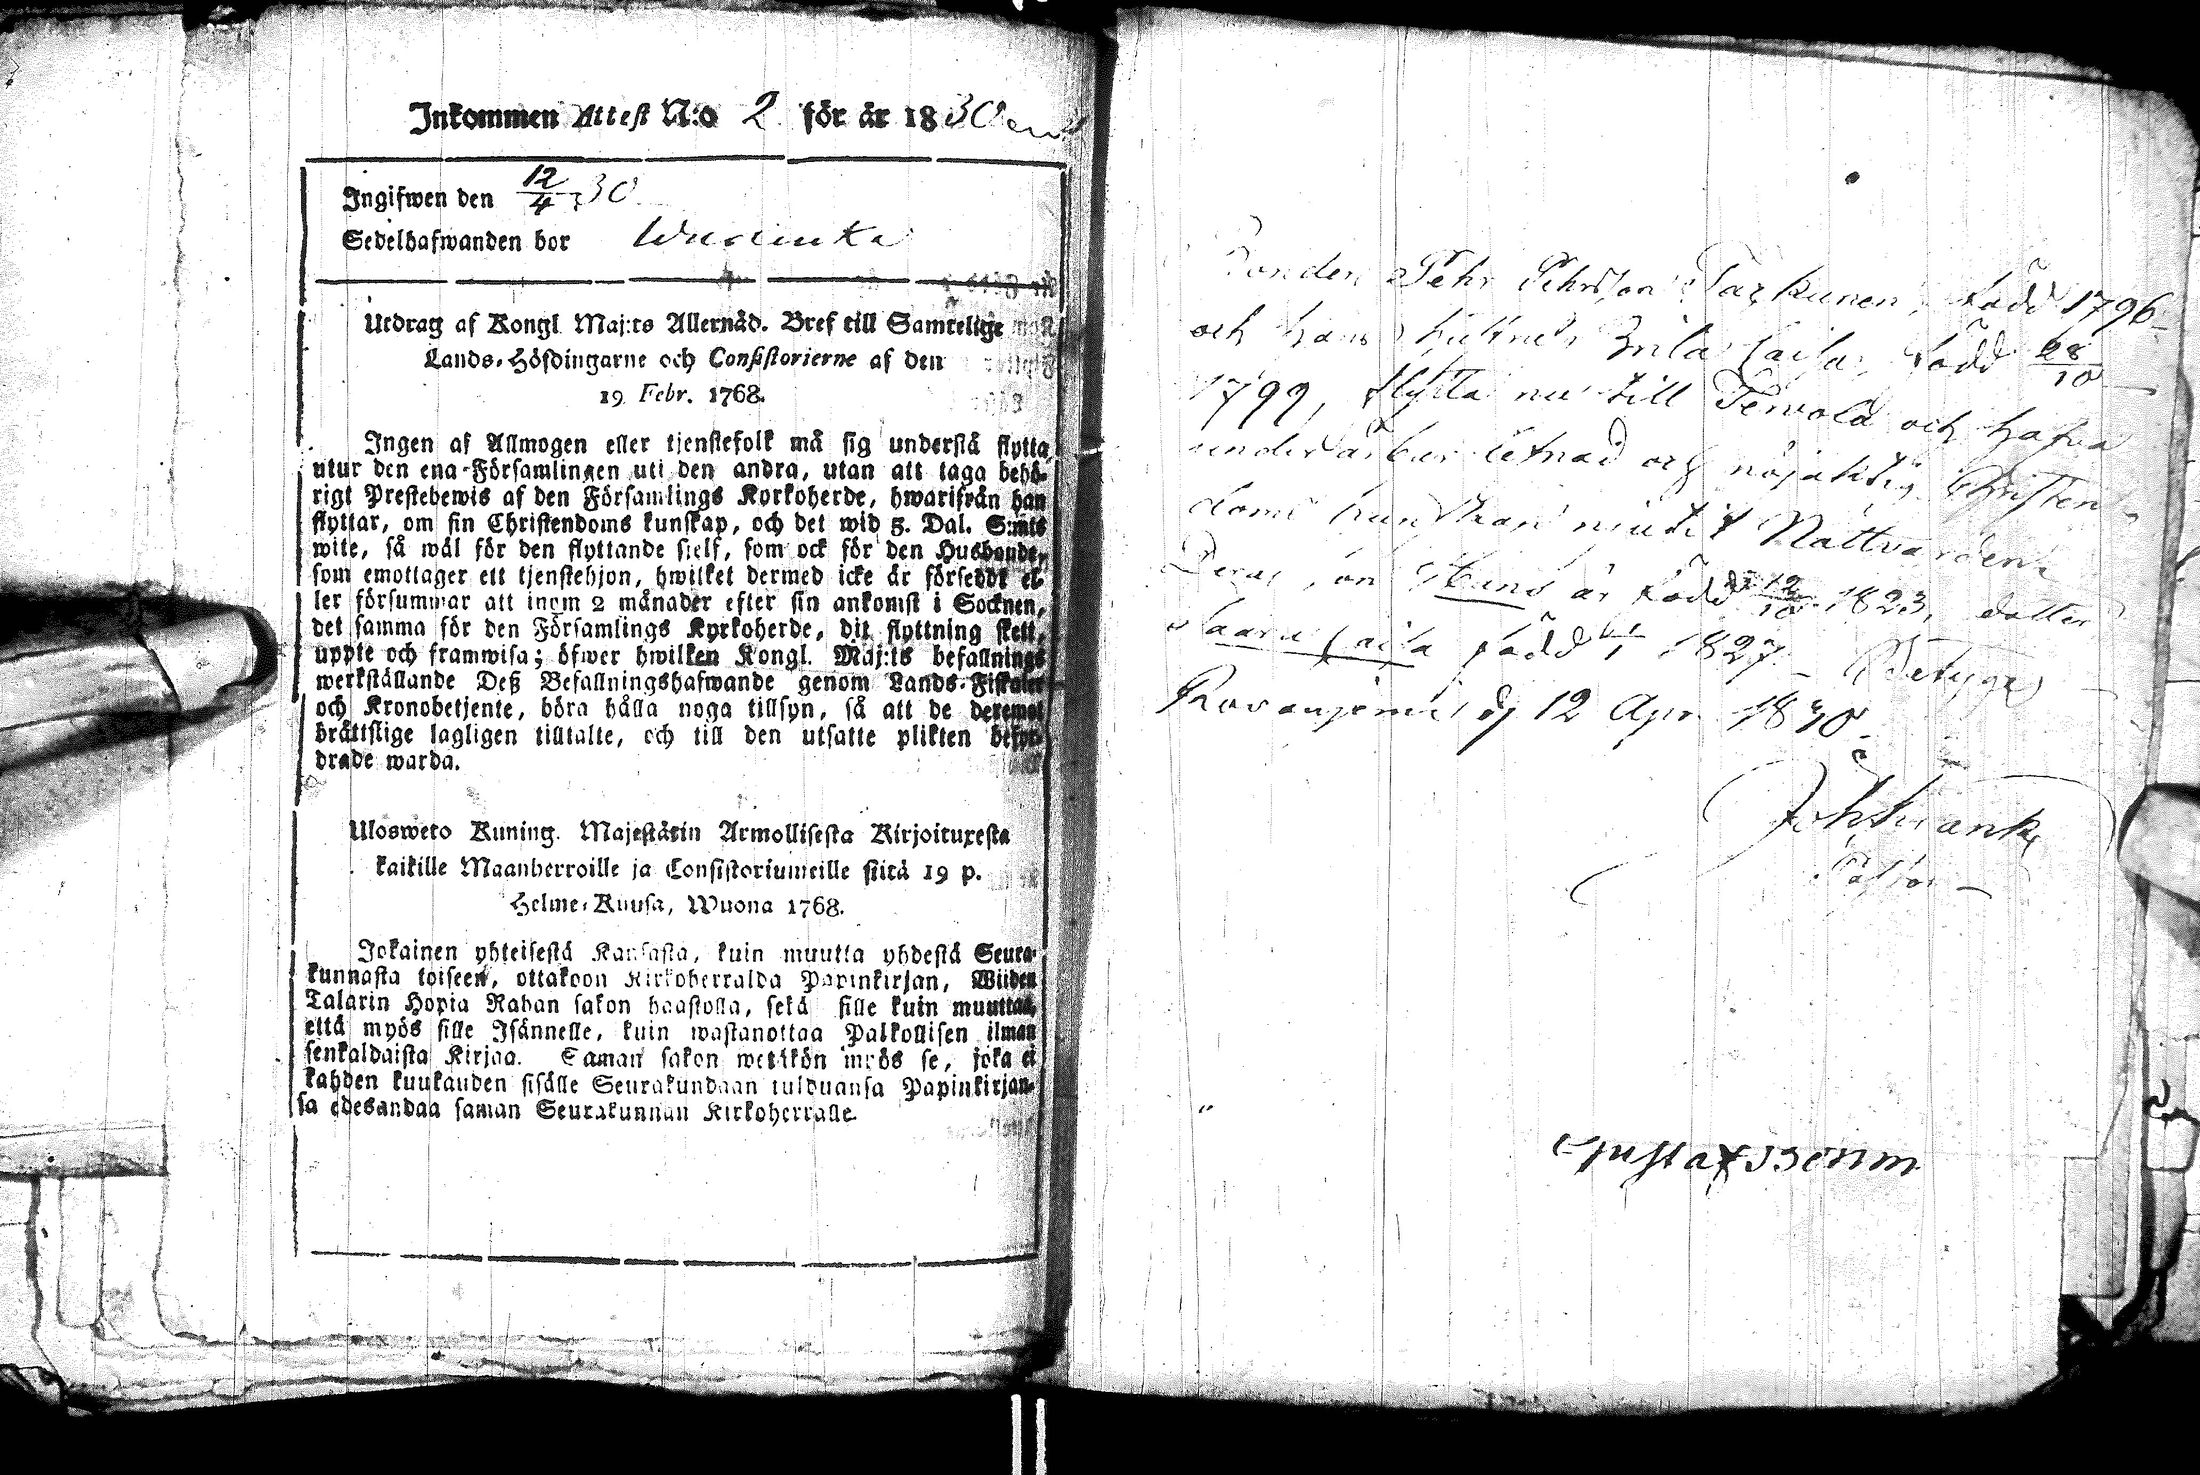 Inkommen Attest N:o 2 för år 1830
Ingifwen den 12/4 30
Sedelhafwanden bor
Utdrag af Kongl Maj:ts Allernåd. Bref till Samtelige
Lands-Höfdingarne och Consistorierne af den
19 Febr. 1768.
Ingen af Allmogen eller tjenstefolk må sig understå flytta
utur den ena Församlingen uti den andra, utan att taga behö-
rigt Prestebewis af den Församlings Kyrkoherde, hwarifrån han
flyttar, om sin Christendoms kunskap, och det wid 5. Dal. S:mts
wite, så wäl för den flyttande sielf, som ock för den Husbonde,
som emottager ett tjenstehjon, hwilket dermed icke är försedt el-
ler försummar att inom 2 månader efter sin ankomst i Socknen,
det samma för den Församlings Kyrkoherde, dit flyttning skett,
uppte och framwisa; öfwer hwilken Kongl. Maj:ts befallnings
werkställande Deß Befallningshafwande genom Lands-Fiskaler
och Kronobetjente, böra hålla noga tillsyn, så att de deremot
brättslige lagligen tilltalte, och till den utsatte plikten befor-
drade warda.
Ulosweto Kuning. Majestätin Armollisesta Kirjoituxesta
kaikille Maanherroille ja Consistoriumeille siitä 19 p.
Helme-Kuusa, Wuona 1768.
Jokainen yhteisestä Kansasta, kuin muutta yhdestä Seura-
kunnasta toiseen, ottakoon Kirkoherralda Papinkirjan, Wiiden
Talarin Hopia Rahan sakon haastolla, sekä sille kuin muuttaa,
että myös sille Isännelle, kuin wastanottaa Palkollisen ilman
senkaldaista Kirjaa. Saman sakon wetäkön myös se, joka ei
kahden kuukauden sisälle Seurakundaan tulduansa Papinkirjan-
sa edesandaa saman Seurakunnan Kirkoherralle.
Bonden Pehr Pehrsson Tarkunen, född 1796
och hans hustru Brita Caisa, född 28/10
1799, flytta nu till Tervola och hafva
underbar lefnad och nöjaktig Christen-
doms kunskap niutit Nattvarden
Deras son Hans är född 12/10 1823, dotter
Caisa född 1827 Betygar
Rovaniemi d 12 Apr 1830
Pastor
Gustaf Böhm